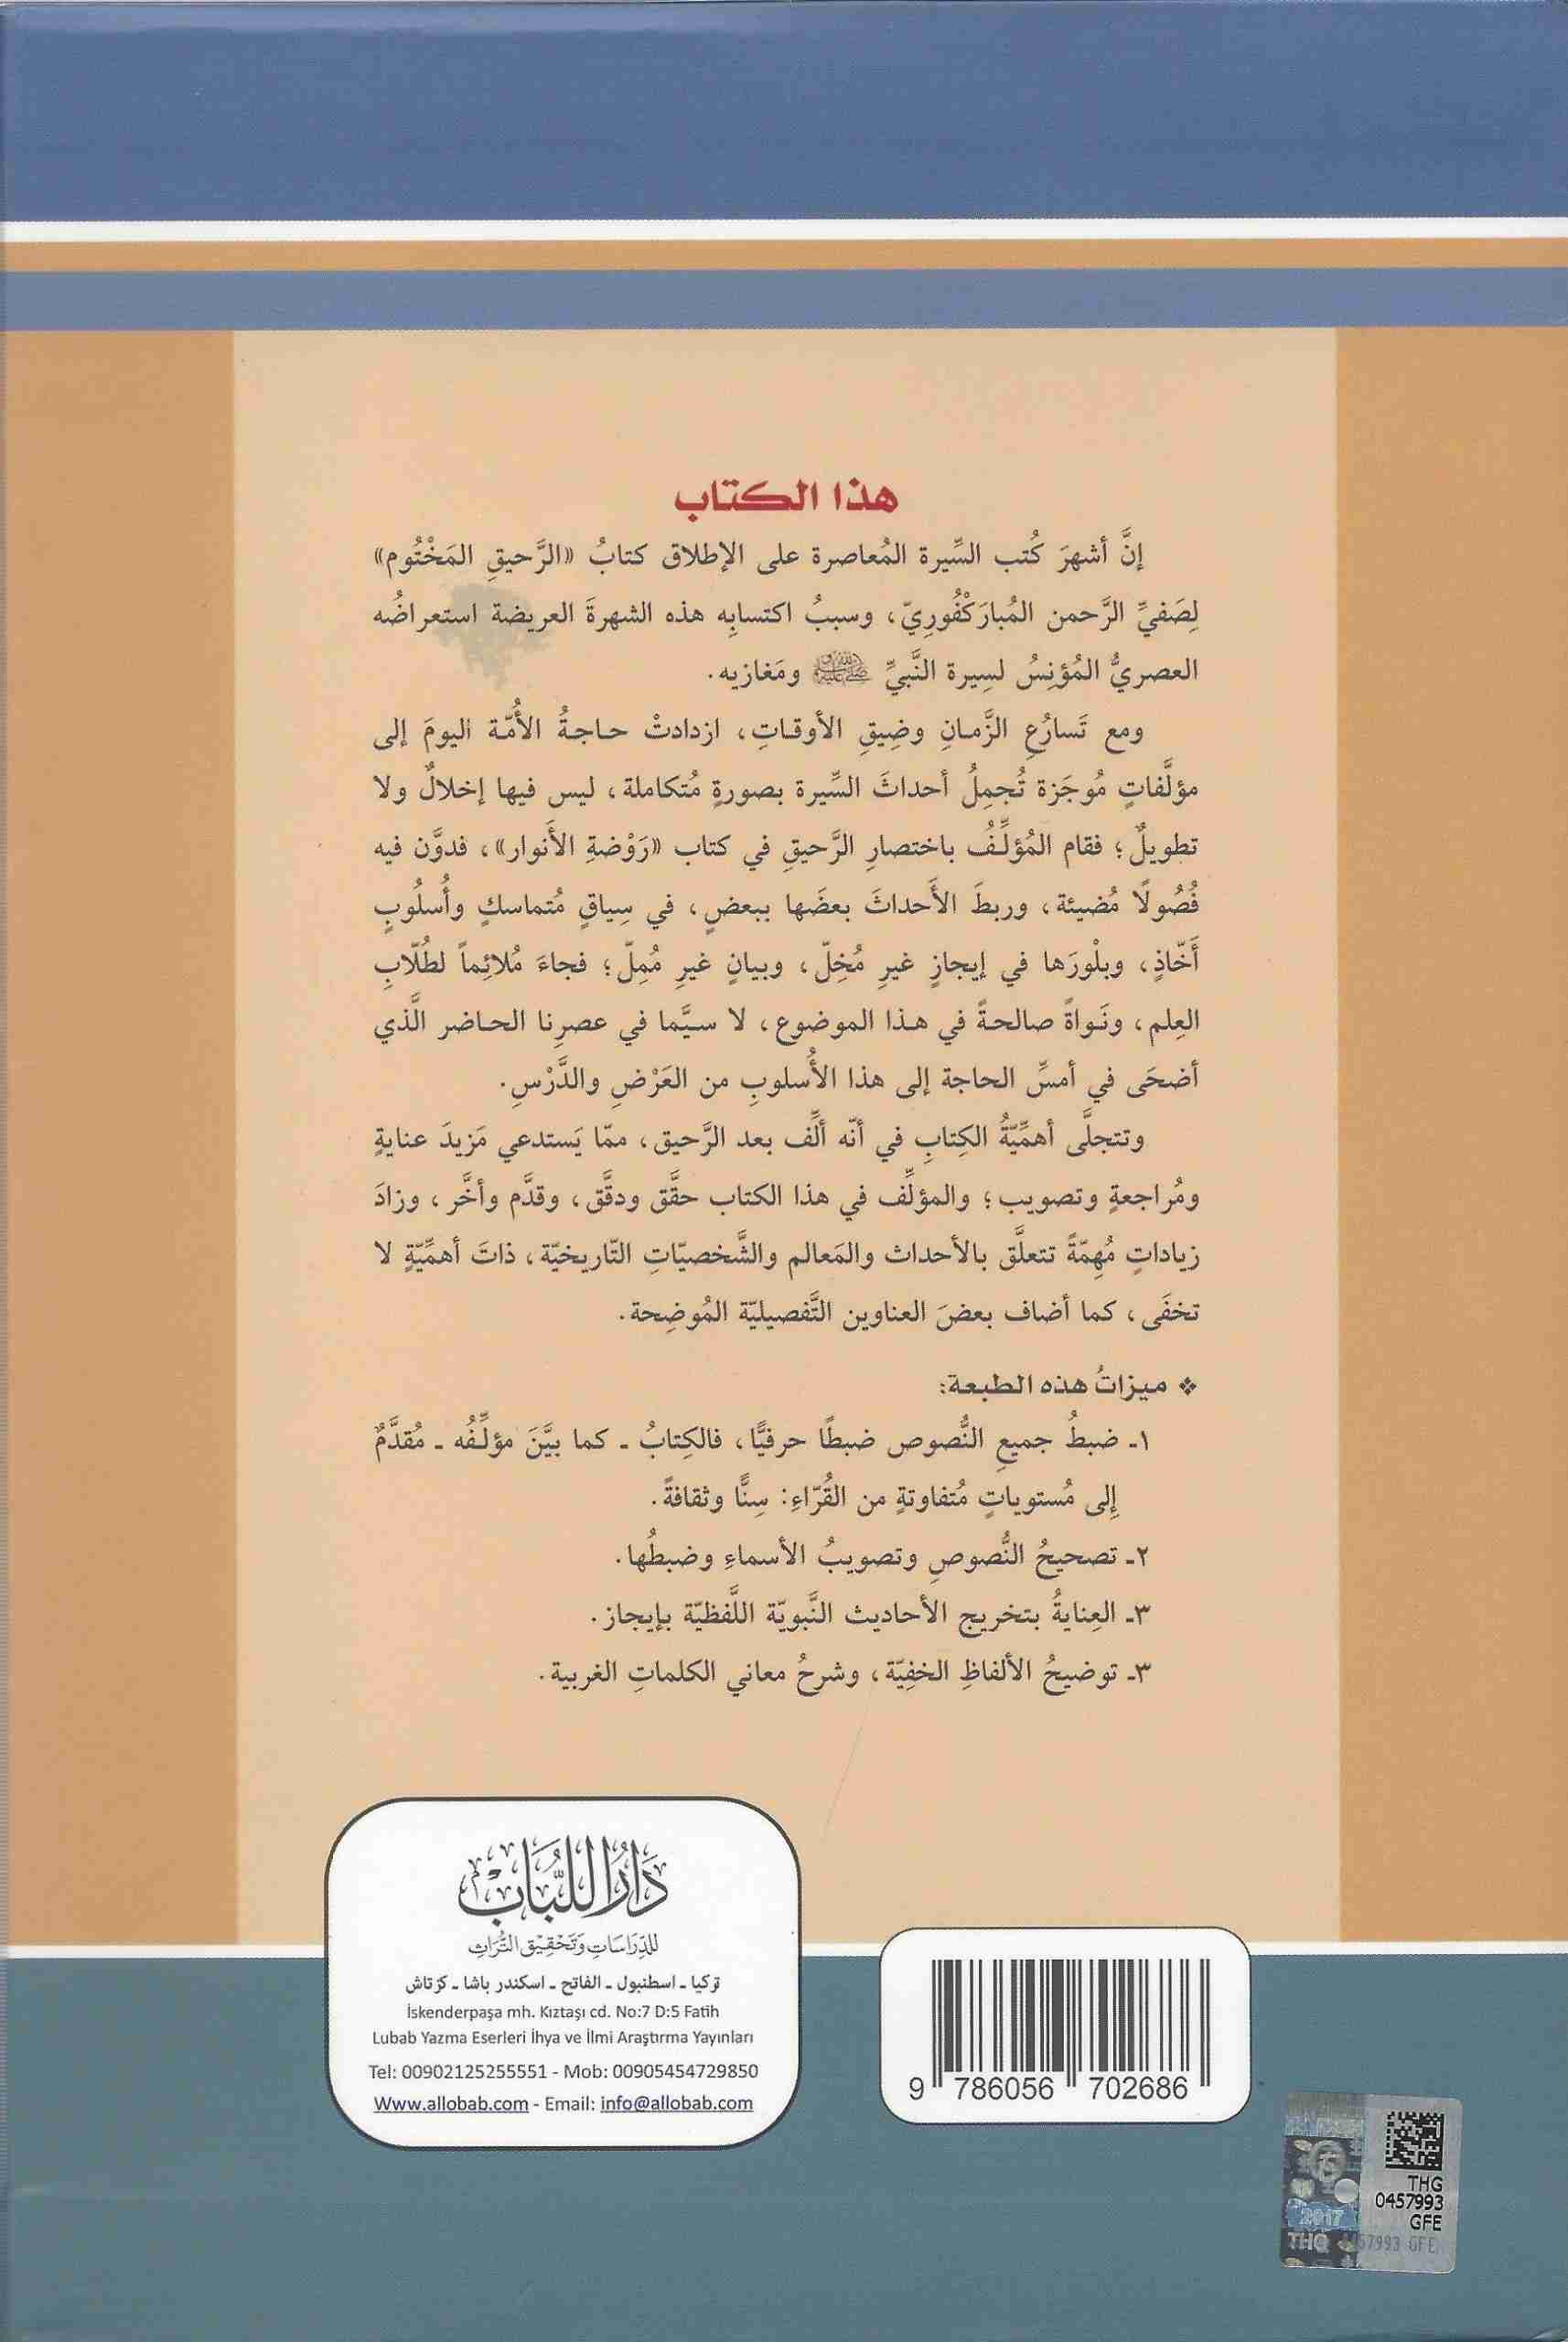 هذا الكتاب
إنَّ أشهرَ كُتب السِّيرة المُعاصرة على الإطلاق كتابُ «الرَّحيقِ المَخْتُوم»
لِصَفيِّ الرَّحمن المُبارَكْفُورِيّ، وسببُ اكتسابِه هذه الشهرةَ العريضة استعراضُه
العصريُّ المُؤنِسُ لسِيرة النَّبيِّ ﷺ ومَغازيه.
ومع تَسارُعِ الزَّمانِ وضِيقِ الأوقاتِ، ازدادتْ حاجةُ الأُمّة اليومَ إلى
مؤلَّفاتٍ مُوجَزة تُجمِلُ أحداثَ السِّيرة بصورةٍ مُتكاملة، ليس فيها إخلالٌ ولا
تطويلٌ؛ فقام المُؤلِّفُ باختصارِ الرَّحيقِ في كتاب «رَوْضةِ الأَنوار»، فدوَّن فيه
فُصُولًا مُضيئة، وربطَ الأَحداثَ بعضَها ببعضٍ، في سِياقٍ مُتماسكٍ وأُسلُوبٍ
أَخّاذٍ، وبلْورَها في إيجازٍ غيرِ مُخِلّ، وبيانٍ غيرِ مُمِلّ؛ فجاءَ مُلائِماً لطُلّابِ
العِلم، ونَواةً صالحةً في هذا الموضوع، لا سيَّما في عصرِنا الحاضر الَّذي
أضحَى في أمسِّ الحاجة إلى هذا الأُسلوبِ من العَرْضِ والدَّرْسِ.
وتتجلَّى أهمِّيّةُ الكِتابِ في أنّه ألِّف بعد الرَّحيق، ممّا يَستدعي مَزيدَ عنايةٍ
ومُراجعةٍ وتصويب؛ والمؤلِّف في هذا الكتاب حقَّق ودقَّق، وقدَّم وأخَّر، وزادَ
زياداتٍ مُهِمّةً تتعلَّق بالأحداث والمَعالم والشَّخصيّاتِ التّاريخيّة، ذاتَ أهمِّيّةٍ لا
تخفَى، كما أضاف بعضَ العناوين التَّفصيليّة المُوضِحة.
❖ ميزاتُ هذه الطبعة:
١ـ ضبطُ جميعِ النُّصوص ضبطًا حرفيًّا، فالكِتابُ ـ كما بيَّنَ مؤلِّفُه ـ مُقدَّمٌ
إِلى مُستوياتٍ مُتفاوتةٍ من القُرّاءِ: سِنًّا وثقافةً.
٢ـ تصحيحُ النُّصوصِ وتصويبُ الأسماءِ وضبطُها.
٣ـ العِنايةُ بتخريج الأحاديث النَّبويّة اللَّفظيّة بإيجاز.
٣ـ توضيحُ الألفاظِ الخفِيّة، وشرحُ معاني الكلماتِ الغريبة.
دَارُ اللُّبَابْ
للدِّرَاسَاتِ وَتَحْقِيْقِ التُّرَاثِ
تركيا ـ اسطنبول ـ الفاتح ـ اسكندر باشا ـ كزتاش
İskenderpaşa mh. Kıztaşı cd. No:7 D:5 Fatih
Lubab Yazma Eserleri İhya ve İlmi Araştırma Yayınları
Tel: 00902125255551 - Mob: 00905454729850
Www.allobab.com - Email: info@allobab.com
9 786056 702686
THG
0457993
GFE
2017